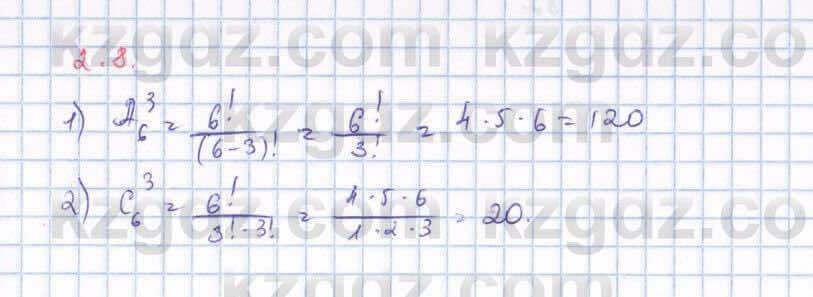 kzgdz.com kzgdz.co
2.8.
1) A₆³ = 6!/(6-3)! = 6!/3! = 4·5·6 = 120
kzgdz.com kzgdz.co
2) C₆³ = 6!/3!·3! = 4·5·6/1·2·3 = 20.
kzgdz.com kzgdz.co